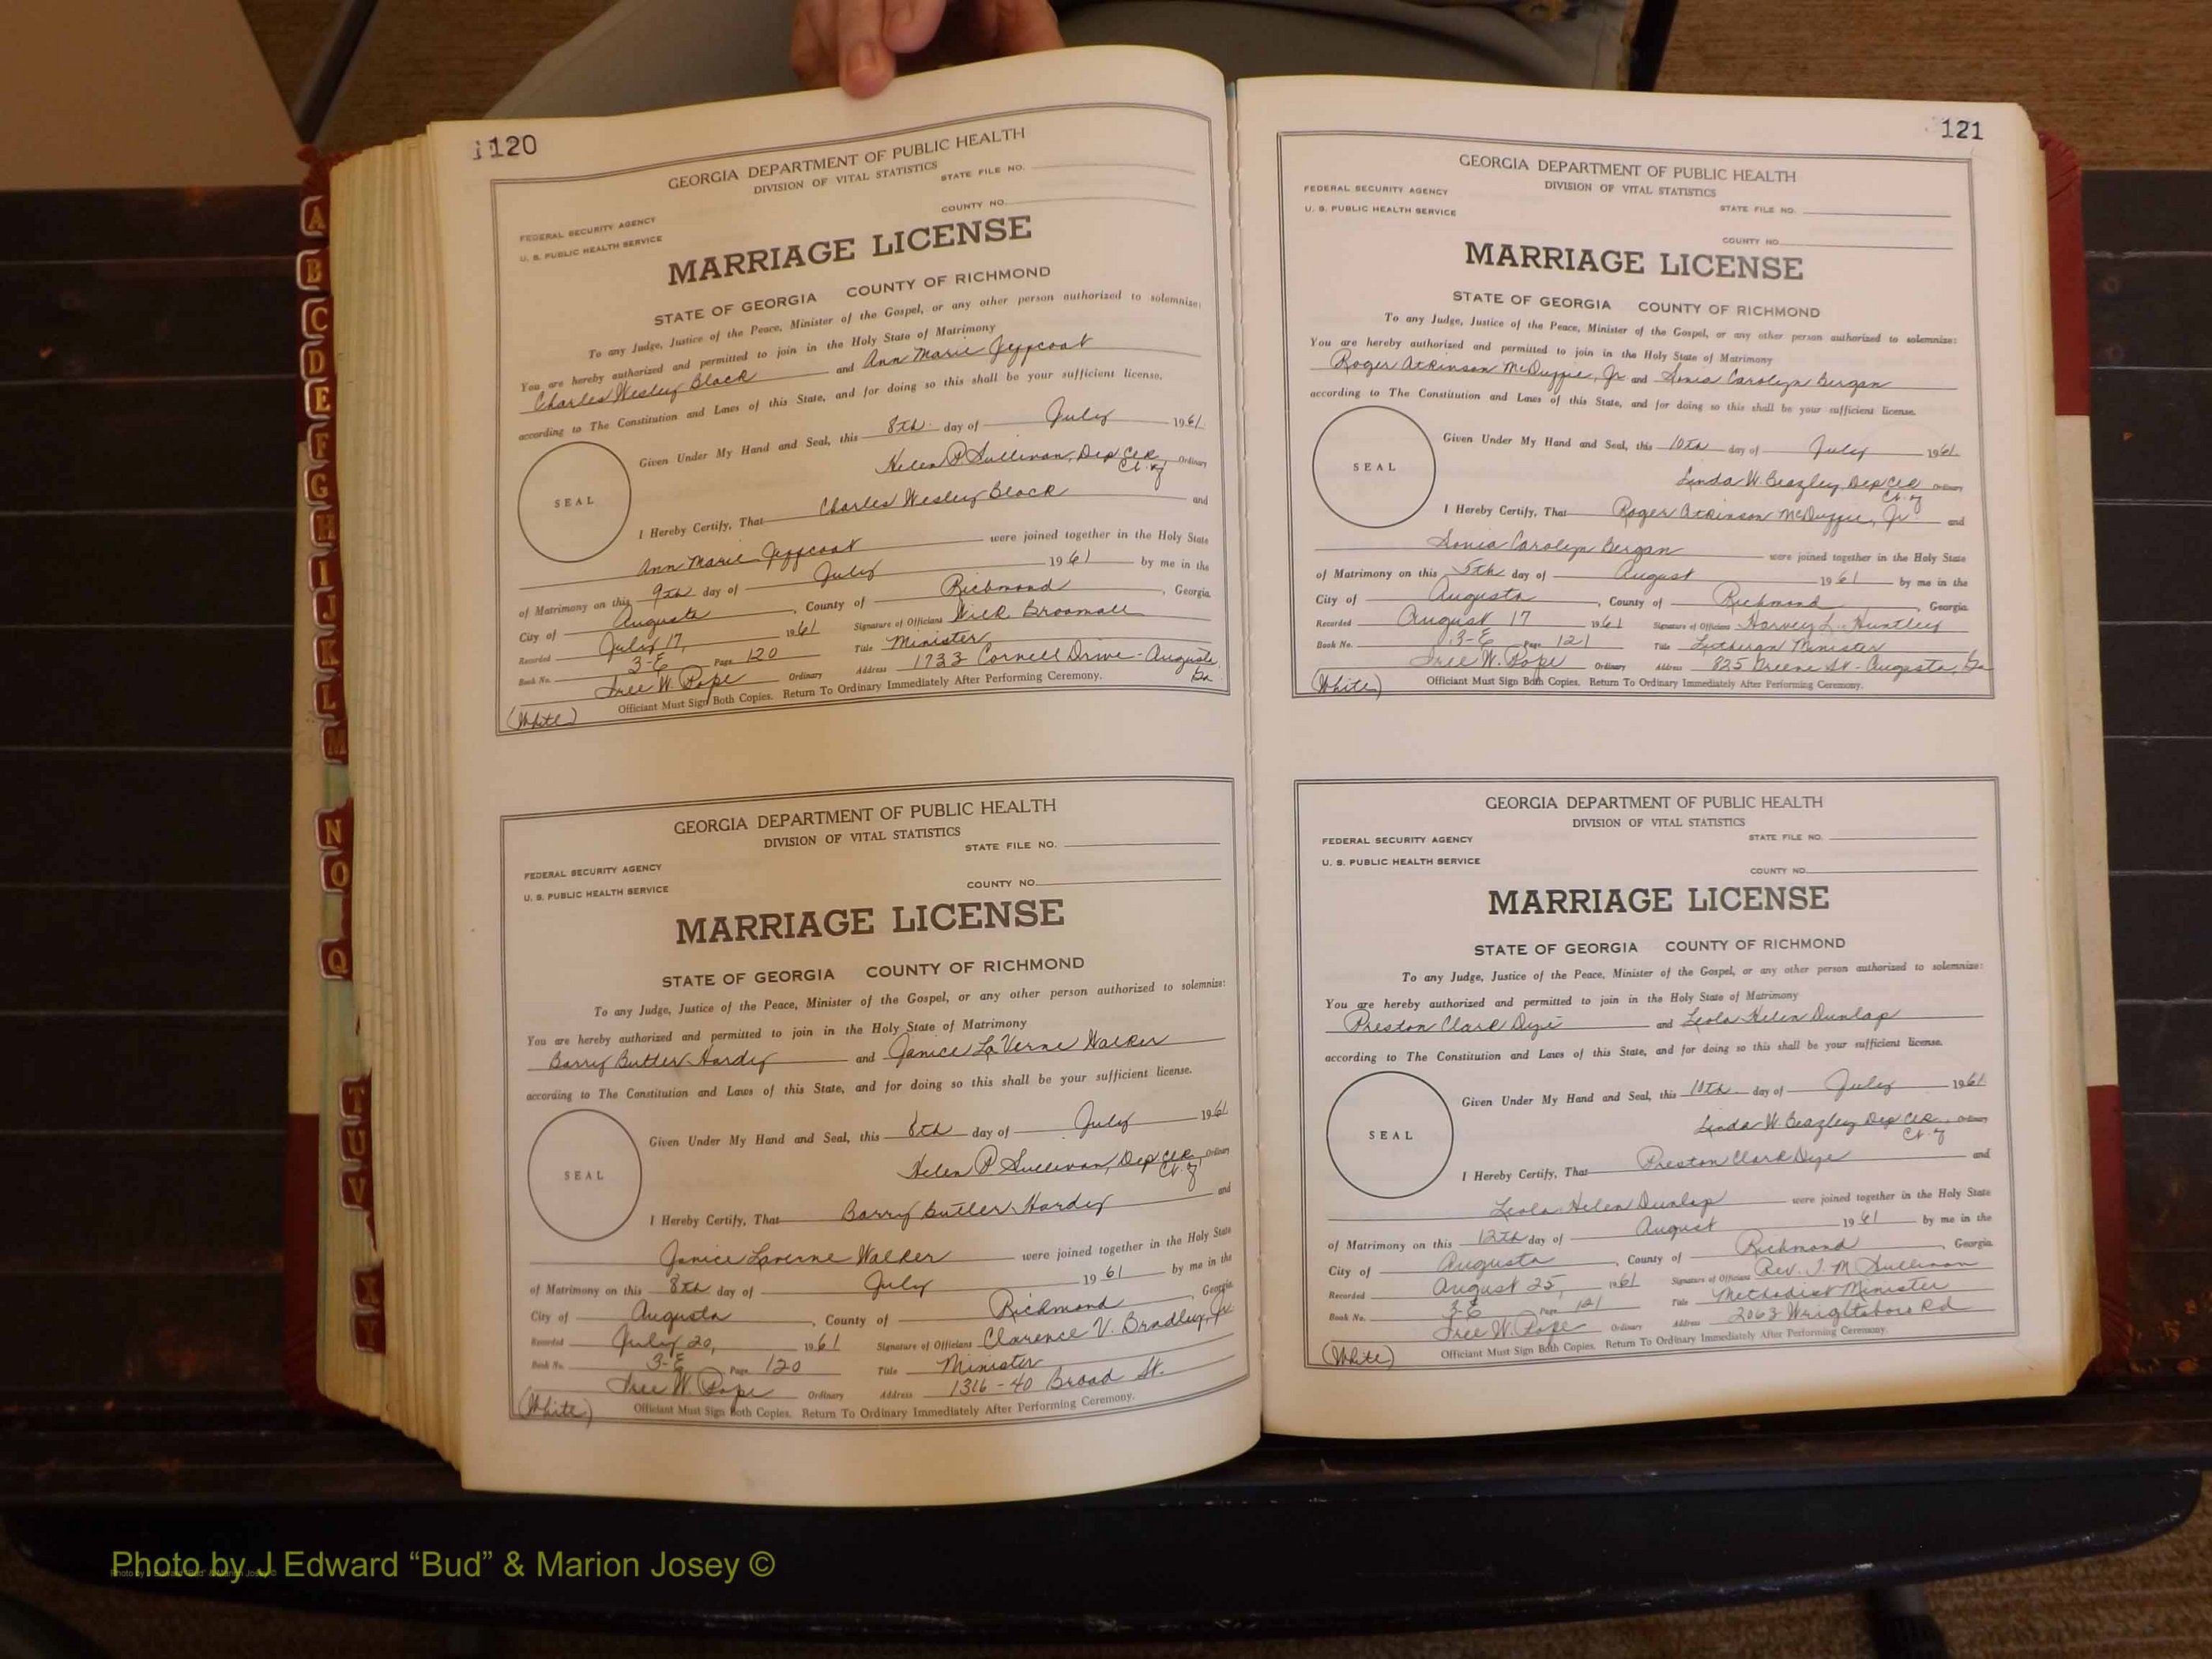 A
B
C
D
E
F
G
H
I
J
K
L
M
N
O
Q
T
U
V
X
Y
120
GEORGIA DEPARTMENT OF PUBLIC HEALTH
DIVISION OF VITAL STATISTICS
STATE FILE NO.
COUNTY NO.
FEDERAL SECURITY AGENCY
U. S. PUBLIC HEALTH SERVICE
MARRIAGE LICENSE
STATE OF GEORGIA COUNTY OF RICHMOND
To any Judge, Justice of the Peace, Minister of the Gospel, or any other person authorized to solemnize:
You are hereby authorized and permitted to join in the Holy State of Matrimony
Charles Wesley Black and Ann Marie Jeffcoat
according to The Constitution and Laws of this State, and for doing so this shall be your sufficient license.
Given Under My Hand and Seal, this 8th day of July 1961
Helen P. Sullivan, Dep Clk Ordinary
Ct. of
SEAL
I Hereby Certify, That Charles Wesley Black and
Ann Marie Jeffcoat were joined together in the Holy State
of Matrimony on this 9th day of July 1961 by me in the
City of Augusta, County of Richmond, Georgia.
Recorded July 17, 1961 Signature of Officiant Broomall
Book No. 3-E Page 120 Title Minister
Tree W. Pope Ordinary Address 1733 Cornell Drive - Augusta, Ga
Officiant Must Sign Both Copies. Return To Ordinary Immediately After Performing Ceremony.
(White)
GEORGIA DEPARTMENT OF PUBLIC HEALTH
DIVISION OF VITAL STATISTICS
STATE FILE NO.
FEDERAL SECURITY AGENCY
U. S. PUBLIC HEALTH SERVICE
COUNTY NO.
MARRIAGE LICENSE
STATE OF GEORGIA COUNTY OF RICHMOND
To any Judge, Justice of the Peace, Minister of the Gospel, or any other person authorized to solemnize:
You are hereby authorized and permitted to join in the Holy State of Matrimony
Barry Butler Hardy and Janice LaVerne Walker
according to The Constitution and Laws of this State, and for doing so this shall be your sufficient license.
Given Under My Hand and Seal, this 6th day of July 1961
Helen P Sullivan, Dep Clk, Ordinary
Ct. of
SEAL
I Hereby Certify, That Barry Butler Hardy and
Janice Laverne Walker were joined together in the Holy State
of Matrimony on this 8th day of July 1961 by me in the
City of Augusta, County of Richmond, Georgia
Recorded July 20, 1961 Signature of Officiant Clarence V. Bradley, Jr
Book No. 3-E Page 120 Title Minister
Tree W. Pope Ordinary Address 1316-40 Broad St.
(White) Officiant Must Sign Both Copies. Return To Ordinary Immediately After Performing Ceremony.
121
GEORGIA DEPARTMENT OF PUBLIC HEALTH
DIVISION OF VITAL STATISTICS
FEDERAL SECURITY AGENCY
U. S. PUBLIC HEALTH SERVICE
STATE FILE NO.
COUNTY NO.
MARRIAGE LICENSE
STATE OF GEORGIA COUNTY OF RICHMOND
To any Judge, Justice of the Peace, Minister of the Gospel, or any other person authorized to solemnize:
You are hereby authorized and permitted to join in the Holy State of Matrimony
Roger Atkinson McDuffie, Jr and Sonia Carolyn Bergan
according to The Constitution and Laws of this State, and for doing so this shall be your sufficient license.
Given Under My Hand and Seal, this 10th day of July 1961
Linda W. Beazley, Dep Clk Ordinary
Ct. of
SEAL
I Hereby Certify, That Roger Atkinson McDuffie, Jr. and
Sonia Carolyn Bergan were joined together in the Holy State
of Matrimony on this 5th day of August 1961 by me in the
City of Augusta, County of Richmond, Georgia
Recorded August 17 1961 Signature of Officiant Harvey L. Huntley
Book No. 3-E Page 121 Title Lutheran Minister
Tree W. Pope Ordinary Address 825 Greene St - Augusta, Ga
(White) Officiant Must Sign Both Copies. Return To Ordinary Immediately After Performing Ceremony.
GEORGIA DEPARTMENT OF PUBLIC HEALTH
DIVISION OF VITAL STATISTICS
FEDERAL SECURITY AGENCY
STATE FILE NO.
U. S. PUBLIC HEALTH SERVICE
COUNTY NO.
MARRIAGE LICENSE
STATE OF GEORGIA COUNTY OF RICHMOND
To any Judge, Justice of the Peace, Minister of the Gospel, or any other person authorized to solemnize:
You are hereby authorized and permitted to join in the Holy State of Matrimony
Preston Clark Dye and Leola Helen Dunlap
according to The Constitution and Laws of this State, and for doing so this shall be your sufficient license.
Given Under My Hand and Seal, this 10th day of July 1961
Linda W. Beazley Dep Clk, Ordinary
Ct. of
SEAL
I Hereby Certify, That Preston Clark Dye and
Leola Helen Dunlap were joined together in the Holy State
of Matrimony on this 12th day of August 1961 by me in the
City of Augusta, County of Richmond, Georgia
Recorded August 25, 1961 Signature of Officiant Rev. J. M Sullivan
Book No. 3-E Page 121 Title Methodist Minister
Tree W. Pope Ordinary Address 2063 Wrightsboro Rd
(White) Officiant Must Sign Both Copies. Return To Ordinary Immediately After Performing Ceremony.
Photo by J Edward “Bud” & Marion Josey ©
Photo by J Edward “Bud” & Marion Josey ©